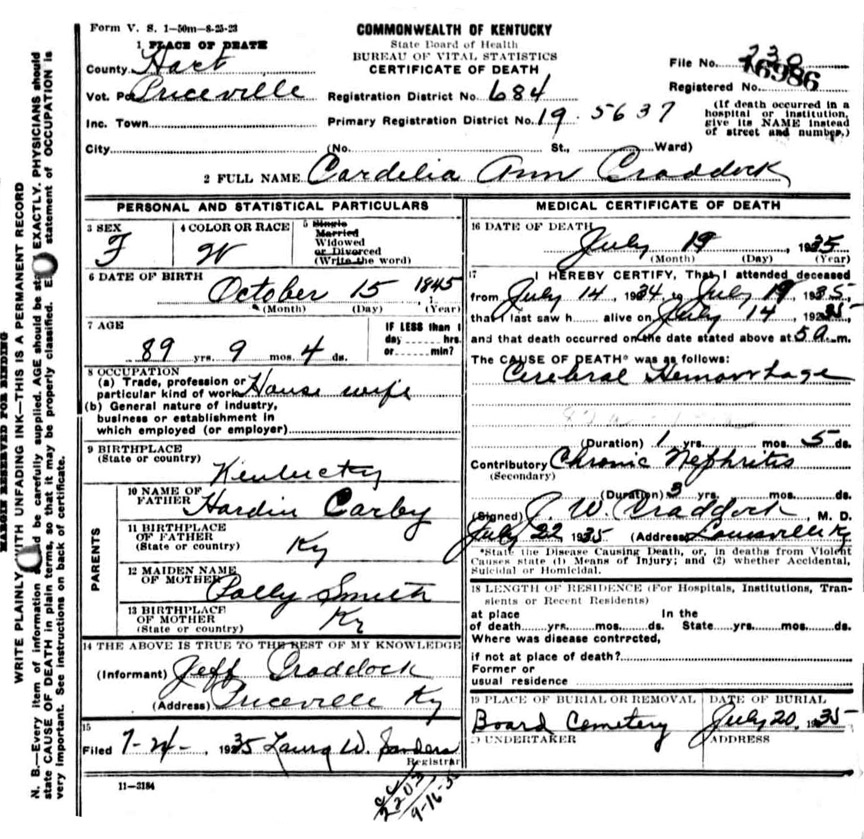 Form V. S. 1—50m—8-25-23
COMMONWEALTH OF KENTUCKY
State Board of Health
BUREAU OF VITAL STATISTICS
CERTIFICATE OF DEATH
1 PLACE OF DEATH
County Hart
Vot. Pct. Priceville
Inc. Town
City
Registration District No. 684
Primary Registration District No. 19 5637
(No. St., Ward)
File No. 16986
230
Registered No.
(If death occurred in a
hospital or institution,
give its NAME instead
of street and number.)
2 FULL NAME Cardelia Ann Craddock
PERSONAL AND STATISTICAL PARTICULARS
3 SEX
F
4 COLOR OR RACE
W
5 Single
Married
Widowed
or Divorced
(Write the word)
6 DATE OF BIRTH
October 15 1845
(Month) (Day) (Year)
7 AGE
89 yrs. 9 mos. 4 ds.
IF LESS than 1
day hrs.
or min?
8 OCCUPATION
(a) Trade, profession or
particular kind of work House wife
(b) General nature of industry,
business or establishment in
which employed (or employer)
9 BIRTHPLACE
(State or country)
Kentucky
PARENTS
10 NAME OF
FATHER Hardin Carby
11 BIRTHPLACE
OF FATHER
(State or country) Ky
12 MAIDEN NAME
OF MOTHER Polly Smith
13 BIRTHPLACE
OF MOTHER
(State or country) Ky
14 THE ABOVE IS TRUE TO THE BEST OF MY KNOWLEDGE
(Informant) Jeff Craddock
(Address) Priceville Ky
15
Filed 7-24-, 1935 Laura W. Sanders
Registrar
11—3184
2203
9-16-3
MEDICAL CERTIFICATE OF DEATH
16 DATE OF DEATH
July 19, 1935
(Month) (Day) (Year)
17 I HEREBY CERTIFY, That I attended deceased
from July 14, 1934, to July 19, 1935,
that I last saw h alive on July 14, 1935
and that death occurred on the date stated above at 5 a. m.
The CAUSE OF DEATH* was as follows:
Cerebral Hemorrhage
(Duration) 1 yrs. mos. 5 ds.
Contributory Chronic Nephritis
(Secondary)
(Duration) 3 yrs. mos. ds.
(Signed) J. W. Craddock, M. D.
July 22 1935 (Address) Louisville Ky
*State the Disease Causing Death, or, in deaths from Violent
Causes state (1) Means of Injury; and (2) whether Accidental,
Suicidal or Homicidal.
18 LENGTH OF RESIDENCE (For Hospitals, Institutions, Tran-
sients or Recent Residents)
at place In the
of death yrs. mos. ds. State yrs. mos. ds.
Where was disease contrrcted,
if not at place of death?
Former or
usual residence
19 PLACE OF BURIAL OR REMOVAL
Board Cemetery
DATE OF BURIAL
July 20, 1935
UNDERTAKER
ADDRESS
MARGIN RESERVED FOR BINDING
WRITE PLAINLY WITH UNFADING INK—THIS IS A PERMANENT RECORD
N. B.—Every item of information should be carefully supplied. AGE should be stated EXACTLY. PHYSICIANS should
state CAUSE OF DEATH in plain terms, so that it may be properly classified. Exact statement of OCCUPATION is
very important. See instructions on back of certificate.